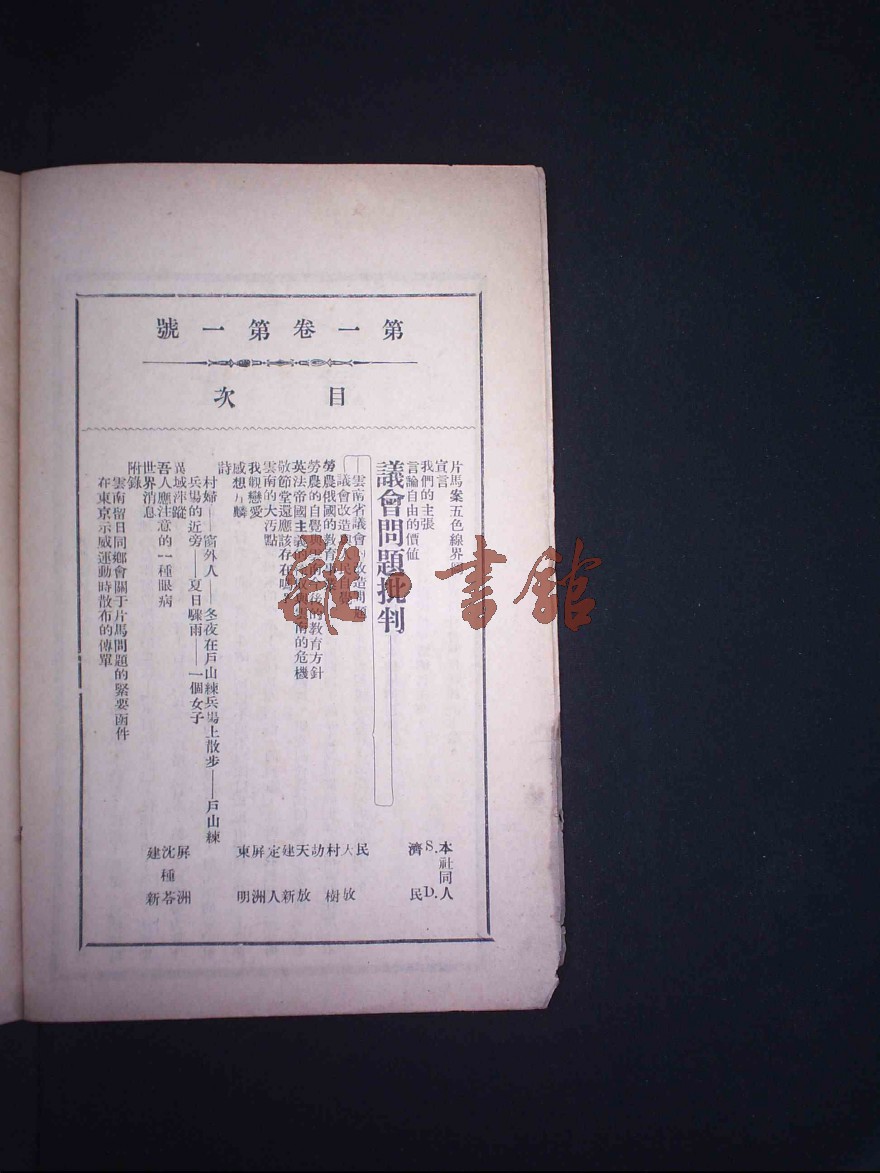 第一卷第一號
目次
片馬案五色線界
宣言
本社同人
我們的主張
S. D.
言論自由的價値
濟民
議會問題批判
雲南省議會的改造問題
民
議會改造與民自覺
大放
勞農俄國的教育
村樹
勞農的自覺與今後的教育方針
訪
英法帝國主義的與雲南的危機
天放
敬節堂還應該存在嗎
建新
雲南的大汚點
定人
我觀戀愛
屏洲
感想力麟
東明
詩
村婦——窗外人——冬夜在戶山練兵場上散步——戶山練
兵場的近旁——夏日驟雨——一個女子
異域萍蹤
屏洲
吾人應注意的一種眼病
沈種蒼
世界消息
建新
附錄
雲南留日同鄉會關于片馬問題的緊要函件
在東京示威運動時散布的傳單
雜·書館